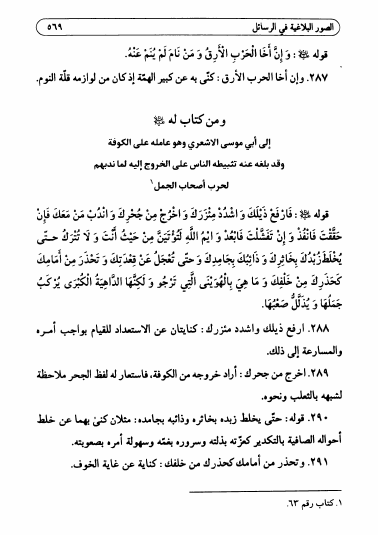 الصور البلاغية في الرسائل ٥٦٩
قوله ﷺ: وَ إِنَّ أَخَا الْحَرْبِ الْأَرِقُ وَ مَنْ نَامَ لَمْ يُنَمْ عَنْهُ.
٢٨٧. وإن أخا الحرب الأرق: كنّى به عن كبير الهمّة إذ كان من لوازمه قلّة النوم.
ومن كتاب له ﷺ
إلى أبي موسى الاشعري وهو عامله على الكوفة
وقد بلغه عنه تثبيطه الناس على الخروج إليه لما ندبهم
لحرب أصحاب الجمل١
قوله ﷺ: فَارْفَعْ ذَيْلَكَ وَ اشْدُدْ مِئْزَرَكَ وَ اخْرُجْ مِنْ جُحْرِكَ وَ انْدُبْ مَنْ مَعَكَ فَإِنْ
حَقَّقْتَ فَانْفُذْ وَ إِنْ تَفَشَّلْتَ فَابْعُدْ وَ ايْمُ اللَّهِ لَتُؤْتَيَنَّ مِنْ حَيْثُ أَنْتَ وَ لَا تُتْرَكُ حتّى
يُخْلَطَ زُبْدُكَ بِخَاثِرِكَ وَ ذَائِبُكَ بِجَامِدِكَ وَ حَتَّى تُعْجَلُ عَنْ قِعْدَتِكَ وَ تَحْذَرَ مِنْ أَمَامِكَ
كَحَذَرِكَ مِنْ خَلْفِكَ وَ مَا هِيَ بِالْهُوَيْنَى الَّتِي تَرْجُو وَ لَكِنَّهَا الدَّاهِيَةُ الْكُبْرَى يُرْكَبُ
جَمَلُهَا وَ يُذَلَّلُ صَعْبُهَا.
٢٨٨. ارفع ذيلك واشدد مئزرك: كنايتان عن الاستعداد للقيام بواجب أمـره
والمسارعة إلى ذلك.
٢٨٩. اخرج من جحرك: أراد خروجه من الكوفة، فاستعار له لفظ الجحر ملاحظة
لشبهه بالثعلب ونحوه.
٢٩٠. قوله: حتّى يخلط زبده بخاثره وذائبه بجامده: مثلان كنىٰ بهما عن خلط
أحواله الصافية بالتكدير كعزّته بذلته وسروره بغمّه وسهولة أمره بصعوبته.
٢٩١. وتحذر من أمامك كحذرك من خلفك: كناية عن غاية الخوف.
١. كتاب رقم ٦٣.